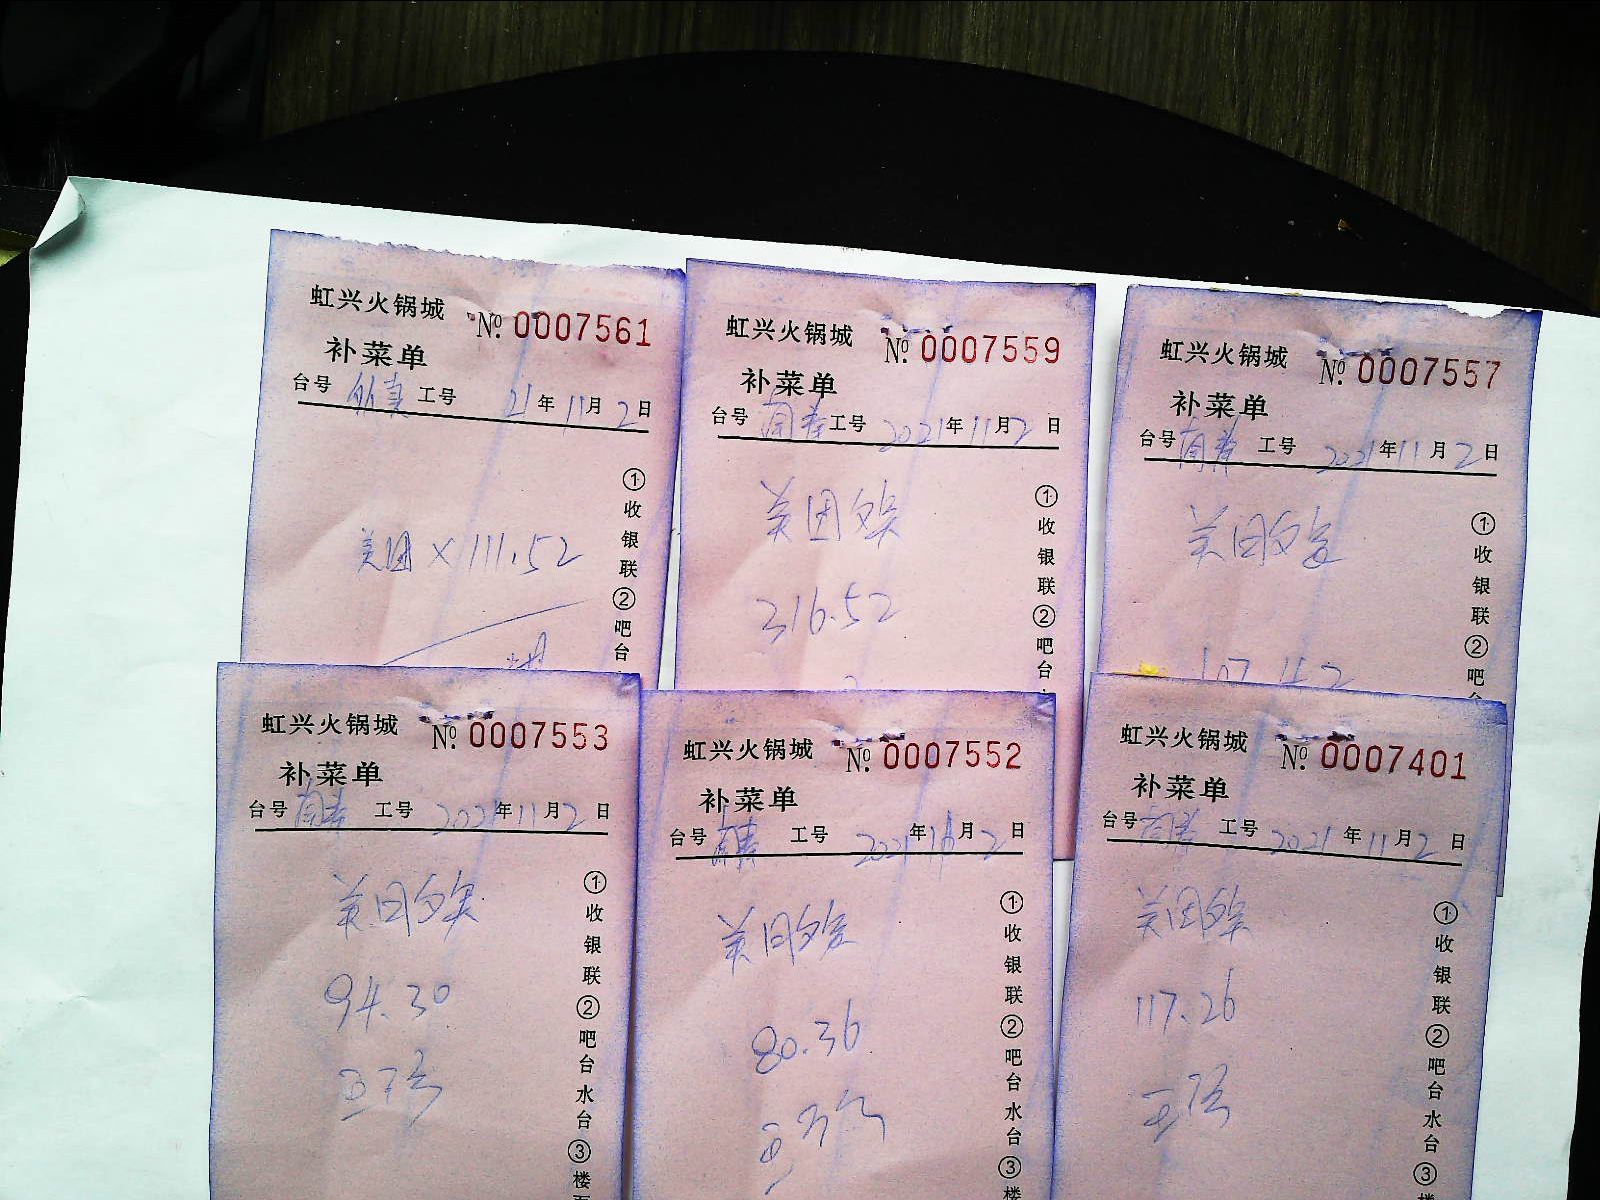 虹兴火锅城 № 0007561
补菜单
台号 工号 21年11月2日
美团×111.52
①收银联②吧台
虹兴火锅城 № 0007559
补菜单
台号 工号 2021年11月2日
美团
316.52
①收银联②吧台
虹兴火锅城 № 0007557
补菜单
台号 工号 2021年11月2日
美团
①收银联②吧
虹兴火锅城 № 0007553
补菜单
台号 工号 2021年11月2日
美团
94.30
①收银联②吧台水台③楼
虹兴火锅城 № 0007552
补菜单
台号 工号 2021年11月2日
美团
80.36
①收银联②吧台水台③楼
虹兴火锅城 № 0007401
补菜单
台号 工号 2021年11月2日
美团
117.26
①收银联②吧台水台③